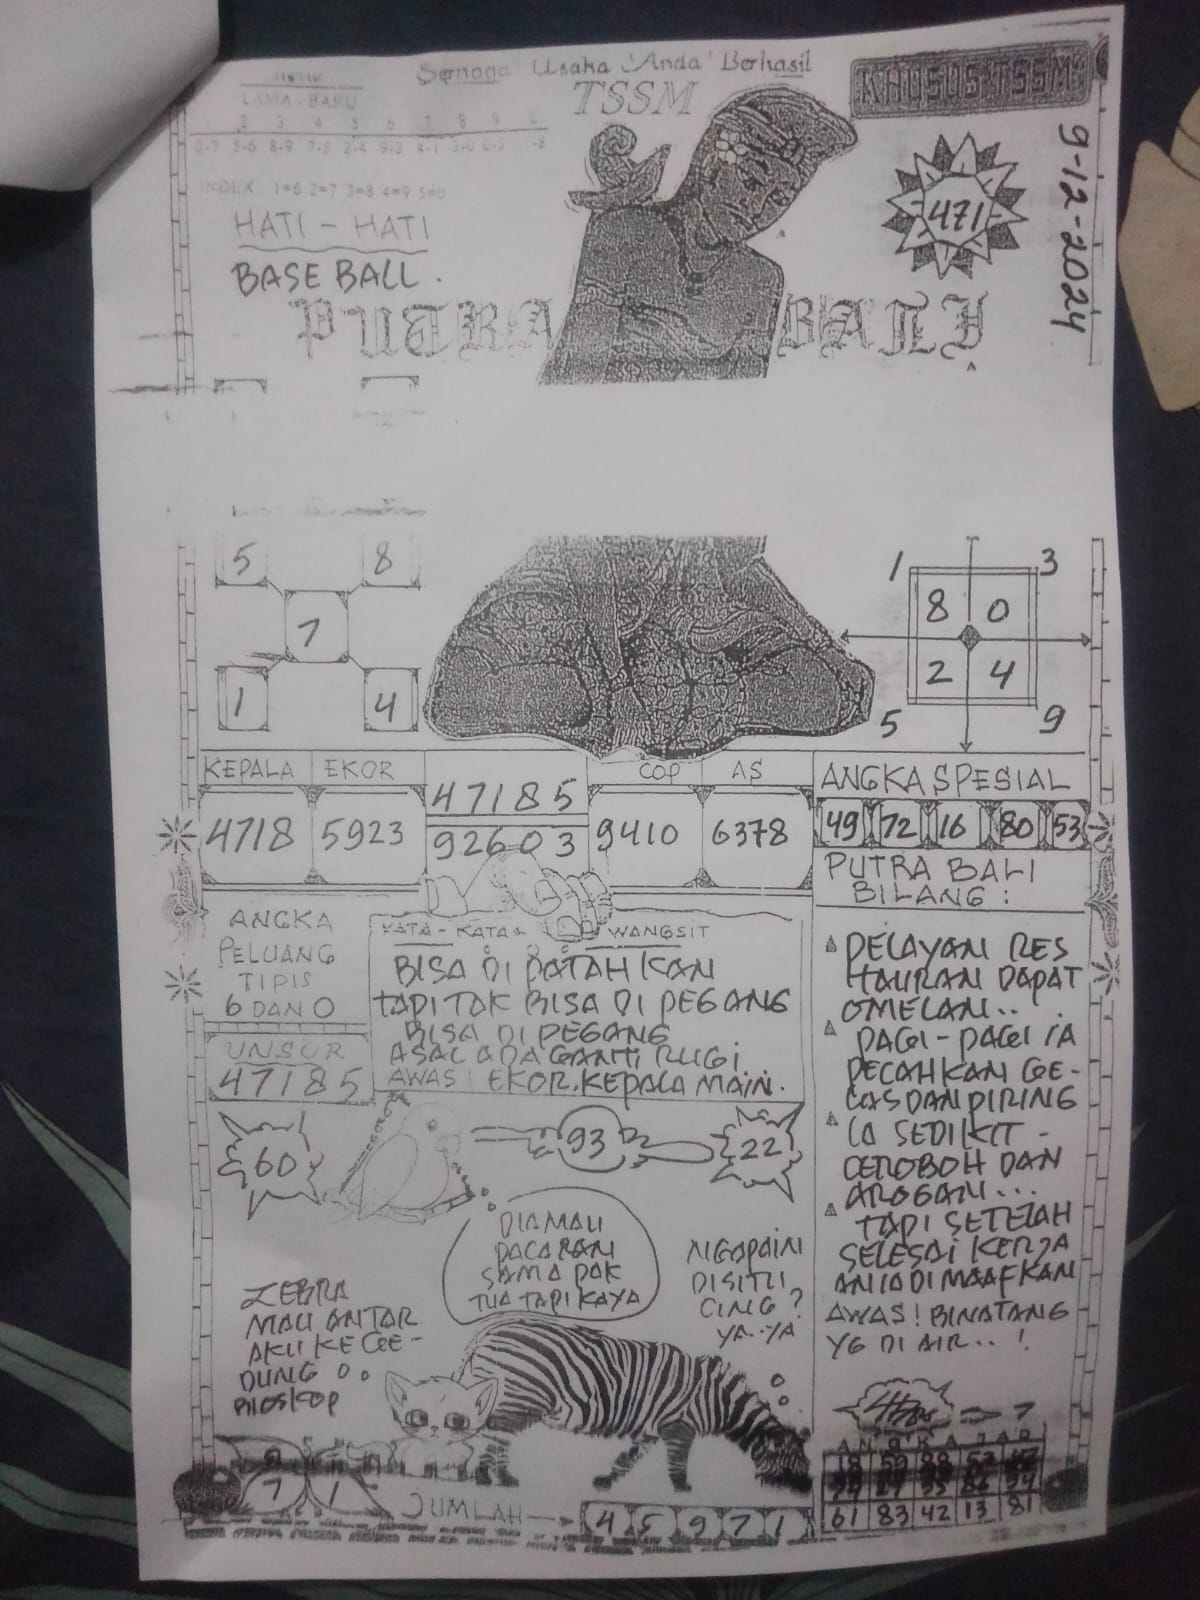 Semoga Usaha Anda Berhasil
TSSM
KHUSUS TSSM
LAMA - BARU
2 3 4 5 6 7 8 9 0
INDEX 1=6 2=7 3=8 4=9 5=0
HATI - HATI
BASE BALL.
471
9-12-2024
PUTRA BALI
5 8
7
1 4
1 3
8 0
2 4
5 9
KEPALA EKOR
4718 5923
47185
92603
COP AS
9410 6378
ANGKA SPESIAL
49 72 16 80 53
ANGKA
PELUANG
TIPIS
6 DAN 0
UNSUR
47185
KATA - KATA WANGSIT
BISA DI PATAHKAN
TAPI TAK BISA DI PEGANG
BISA DI PEGANG
ASAL ADA GANTI RUGI
AWAS! EKOR. KEPALA MAIN.
PUTRA BALI
BILANG :
PELAYAN RES
TAURAN DAPAT
OMELAN..
PAGI - PAGI IA
PECAHKAN GE-
LAS DAN PIRING
IA SEDIKIT
CEROBOH DAN
AROGAN...
TAPI SETELAH
SELESAI KERJA
ANIA DI MAAFKAN
AWAS! BINATANG
YG DI AIR.. !
60
93
22
DIA MAU
PACARAN
SAMA PAK
TUA TAPI KAYA
NGAPAIN
DISITU
CING?
YA..YA
ZEBRA
MAU ANTAR
AKU KE GE-
DUNG
BIOSKOP
7 1
JUMLAH
4 5 9 7 1
7
61 83 42 13 81